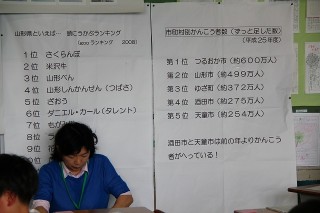 山形県といえば… 頭にうかぶランキング
(goo ランキング 2008)
1位 さくらんぼ
2位 米沢牛
3位 山形べん
4位 山形しんかんせん(つばさ)
5位 ざおう
6位 ダニエル・カール(タレント)
7位
8位
9位
市町村別かんこう者数(ずっと足した数)
(平成25年度)
第1位 つるおか市(約600万人)
第2位 山形市(約499万人)
第3位 ゆざ町(約372万人)
第4位 酒田市(約275万人)
第5位 天童市(約254万人)
酒田市と天童市は前の年よりかんこう
者がへっている!